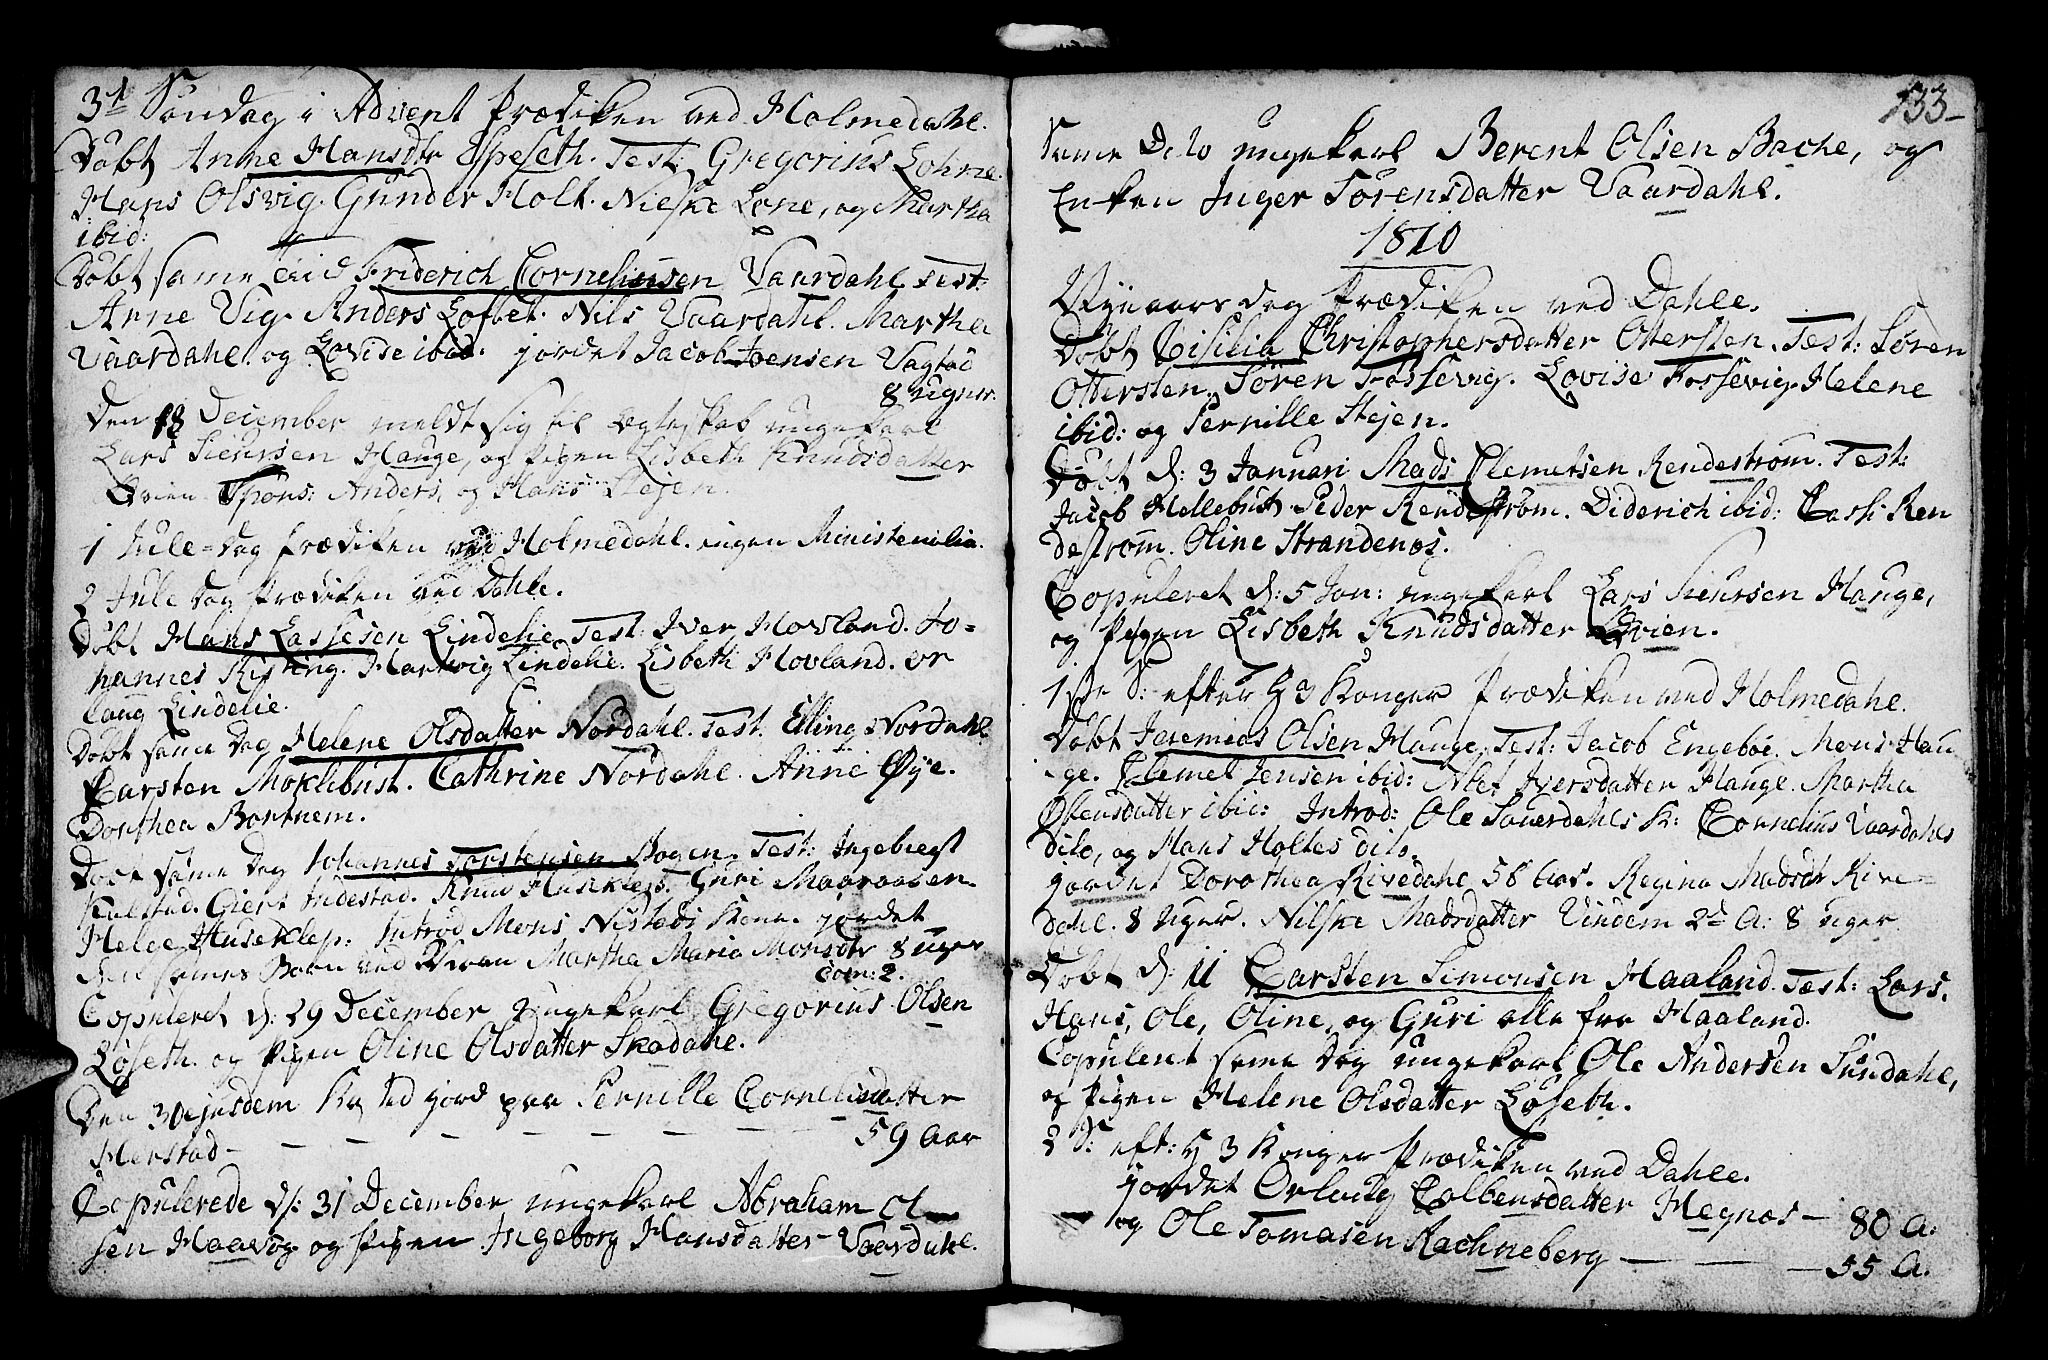 3die Søndag i Advent Prædiken ved Holmedahl.
Døbt Anne Hansdtr Espeseth. Test: Gregorius Lohne.
Hans Olsvig. Gunder Holt. Nilske Lone, og Martha
ibid:
Døbt same Tiid Friderich Corneliussen Vaardahl Test:
Anne Vig. Anders Løfbet. Nils Vaardahl. Martha
Vaardahl. og Lovise ibid. jordet Jacob Joensen Vagstad
8 Uger.
Den 18 December meldt sig til Egteskab ungekarl
Lars Siursen Hauge, og Pigen Lisbeth Knudsdatter
Qvien. Spons: Anders, og Hans Stejen.
1 Jule-Dag Prædiken ved Holmedahl. ingen Ministerialia.
2 Jule Dag Prædiken ved Dahle.
Døbt Hans Lassesen Lindelie. Test: Iver Hovland. Jo-
hannes Risting. Hartvig Lindelie. Lisbeth Hovland. or
laug Lindelie.
Døbt same Dag Helene Olsdatter Nordahl. Test. Elling Nordahl
Carsten Moklibust. Cathrine Nordahl. Anne Øye.
Dorthea Bortnem.
Døbt same Dag Johannes Torstensen Hogen. Test: Ingebregt
Kalstad. Giert Indestad. Knud Huseklep. Guri Maaraasen.
Helee Huseklep. Introd Mons Nistads Kone. jordet
sames Barn ved Navn Martha Maria Monsdtr 8 uger
Com: 2.
Copuleret d: 29 December ungekarl Gregorius Olsen
Løseth. og Pigen Oline Olsdatter Skadahl.
Den 30 ejusdem kasted jord paa Pernille Cornelisdatter
Herstad — — — — — — 59 Aar
Copulerede d: 31 December ungekarl Abraham Ol-
sen Haavig og Pigen Ingeborg Hansdatter Vaardahl.
133-
Same Dito ungekarl Berent Olsen Bache, og
Enken Inger Sørensdatter Vaardahl.
1810
Nynaars dag Prædiken ved Dahle.
Døbt Cisilia Christophersdatter Ottersten. Test: Søren
Ottersten. Søren Fossevig. Lovise Fossevig. Helene
ibid: og Pernille Stejen.
Døbt d: 3 Januari Mads Clemetsen Rendestrom. Test:
Jacob Hellebust. Peder Rendestrom. Diderich ibid: Cassi Ren
destrom. Oline Strandenæs.
Copuleret d: 5 Jan: ungekarl Lars Siursen Hauge,
og Pigen Lisbeth Knudsdatter Qvien.
1ste S: efter H 3 Konger Prædiken ved Holmedahl.
Døbt Jeremias Olsen Hauge. Test: Jacob Engebøe. Mons Hau
ge. Clemet Jensen ibid: Abet Iversdatter Hauge. Martha
Olsensdatter ibid: Introd: Ole Sauerdahls K: Cornelius Vaardahls
dito, og Hans Holtes dito.
jordet Dorothea Rivedahl 58 Aar. Regina Madsdtr Rive-
dahl. 8 Uger. Nilske Madsdatter Vindem 2d A: 8 uger
Døbt d: 11 Carsten Simonsen Haaland. Test: Lars.
Hans, Ole, Oline, og Guri alle fra Haaland.
Copuleret same Dag ungekarl Ole Andersen Sundahl,
og Pigen Helene Olsdatter Løseth.
2 S: eft: H 3 Konger Prædiken ved Dahle.
jordet Orlaug Colbensdatter Hegnæs — 80 A.
og Ole Tomasen Rachneberg — — — 55 A.